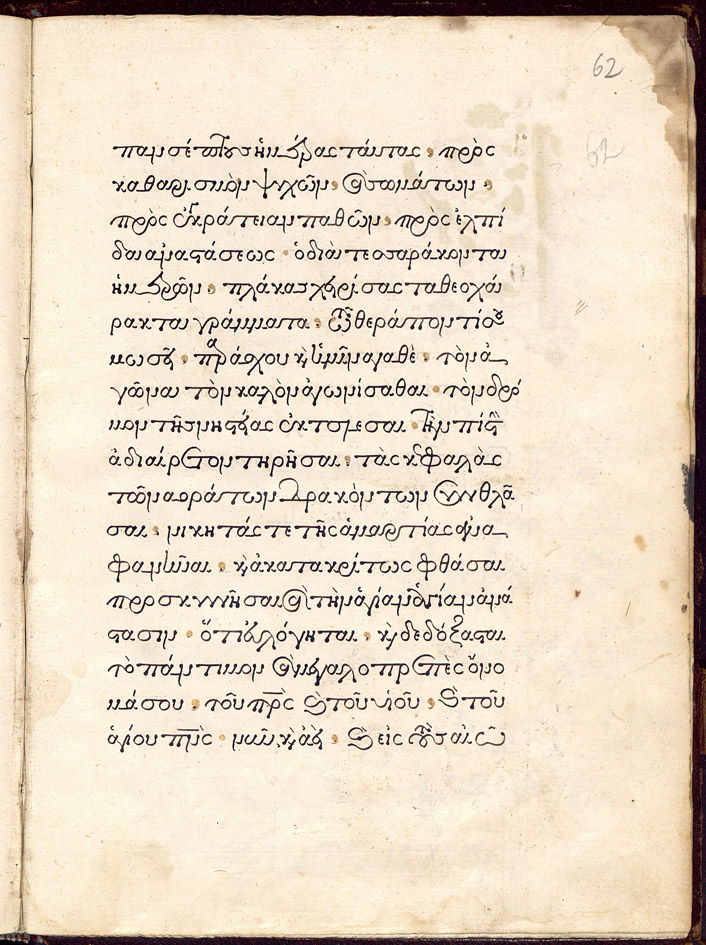 πανσέπτους ἡμέρας ταύτας, πρὸς
καθαρισμὸν ψυχῶν καὶ σωμάτων,
πρὸς ἐγκράτειαν παθῶν, πρὸς ἐλπί
δα ἀναστάσεως· ὁ διὰ τεσσαράκοντα
ἡμερῶν· πλάκας χειρίσας τὰ θεοχά
ρακτα γράμματα· τῷ θεράποντί σου
μωσεῖ· παράσχου καὶ ἡμῖν ἀγαθὲ· τὸν ἀ
γῶνα τὸν καλὸν ἀγωνίσασθαι· τὸν δρό
μον τῆς νηστείας ἐκτελέσαι· τὴν πίστιν
ἀδιαίρετον τηρῆσαι· τὰς κεφαλὰς
τῶν ἀοράτων δρακόντων συνθλά
σαι· νικητάς τε τῆς ἁμαρτίας ἀνα
φανῆναι· καὶ ἀκατακρίτως φθάσαι
προσκυνῆσαι καὶ τὴν ἁγίαν ἀνά
στασιν· ὅτι εὐλόγηται· καὶ δεδόξασται
τὸ πάντιμον καὶ μεγαλοπρεπὲς ὄνο
μά σου· τοῦ πρς καὶ τοῦ υἱοῦ· καὶ τοῦ
ἁγίου πνς· νῦν καὶ ἀεὶ· καὶ εἰς τοὺς αἰῶ
62
62